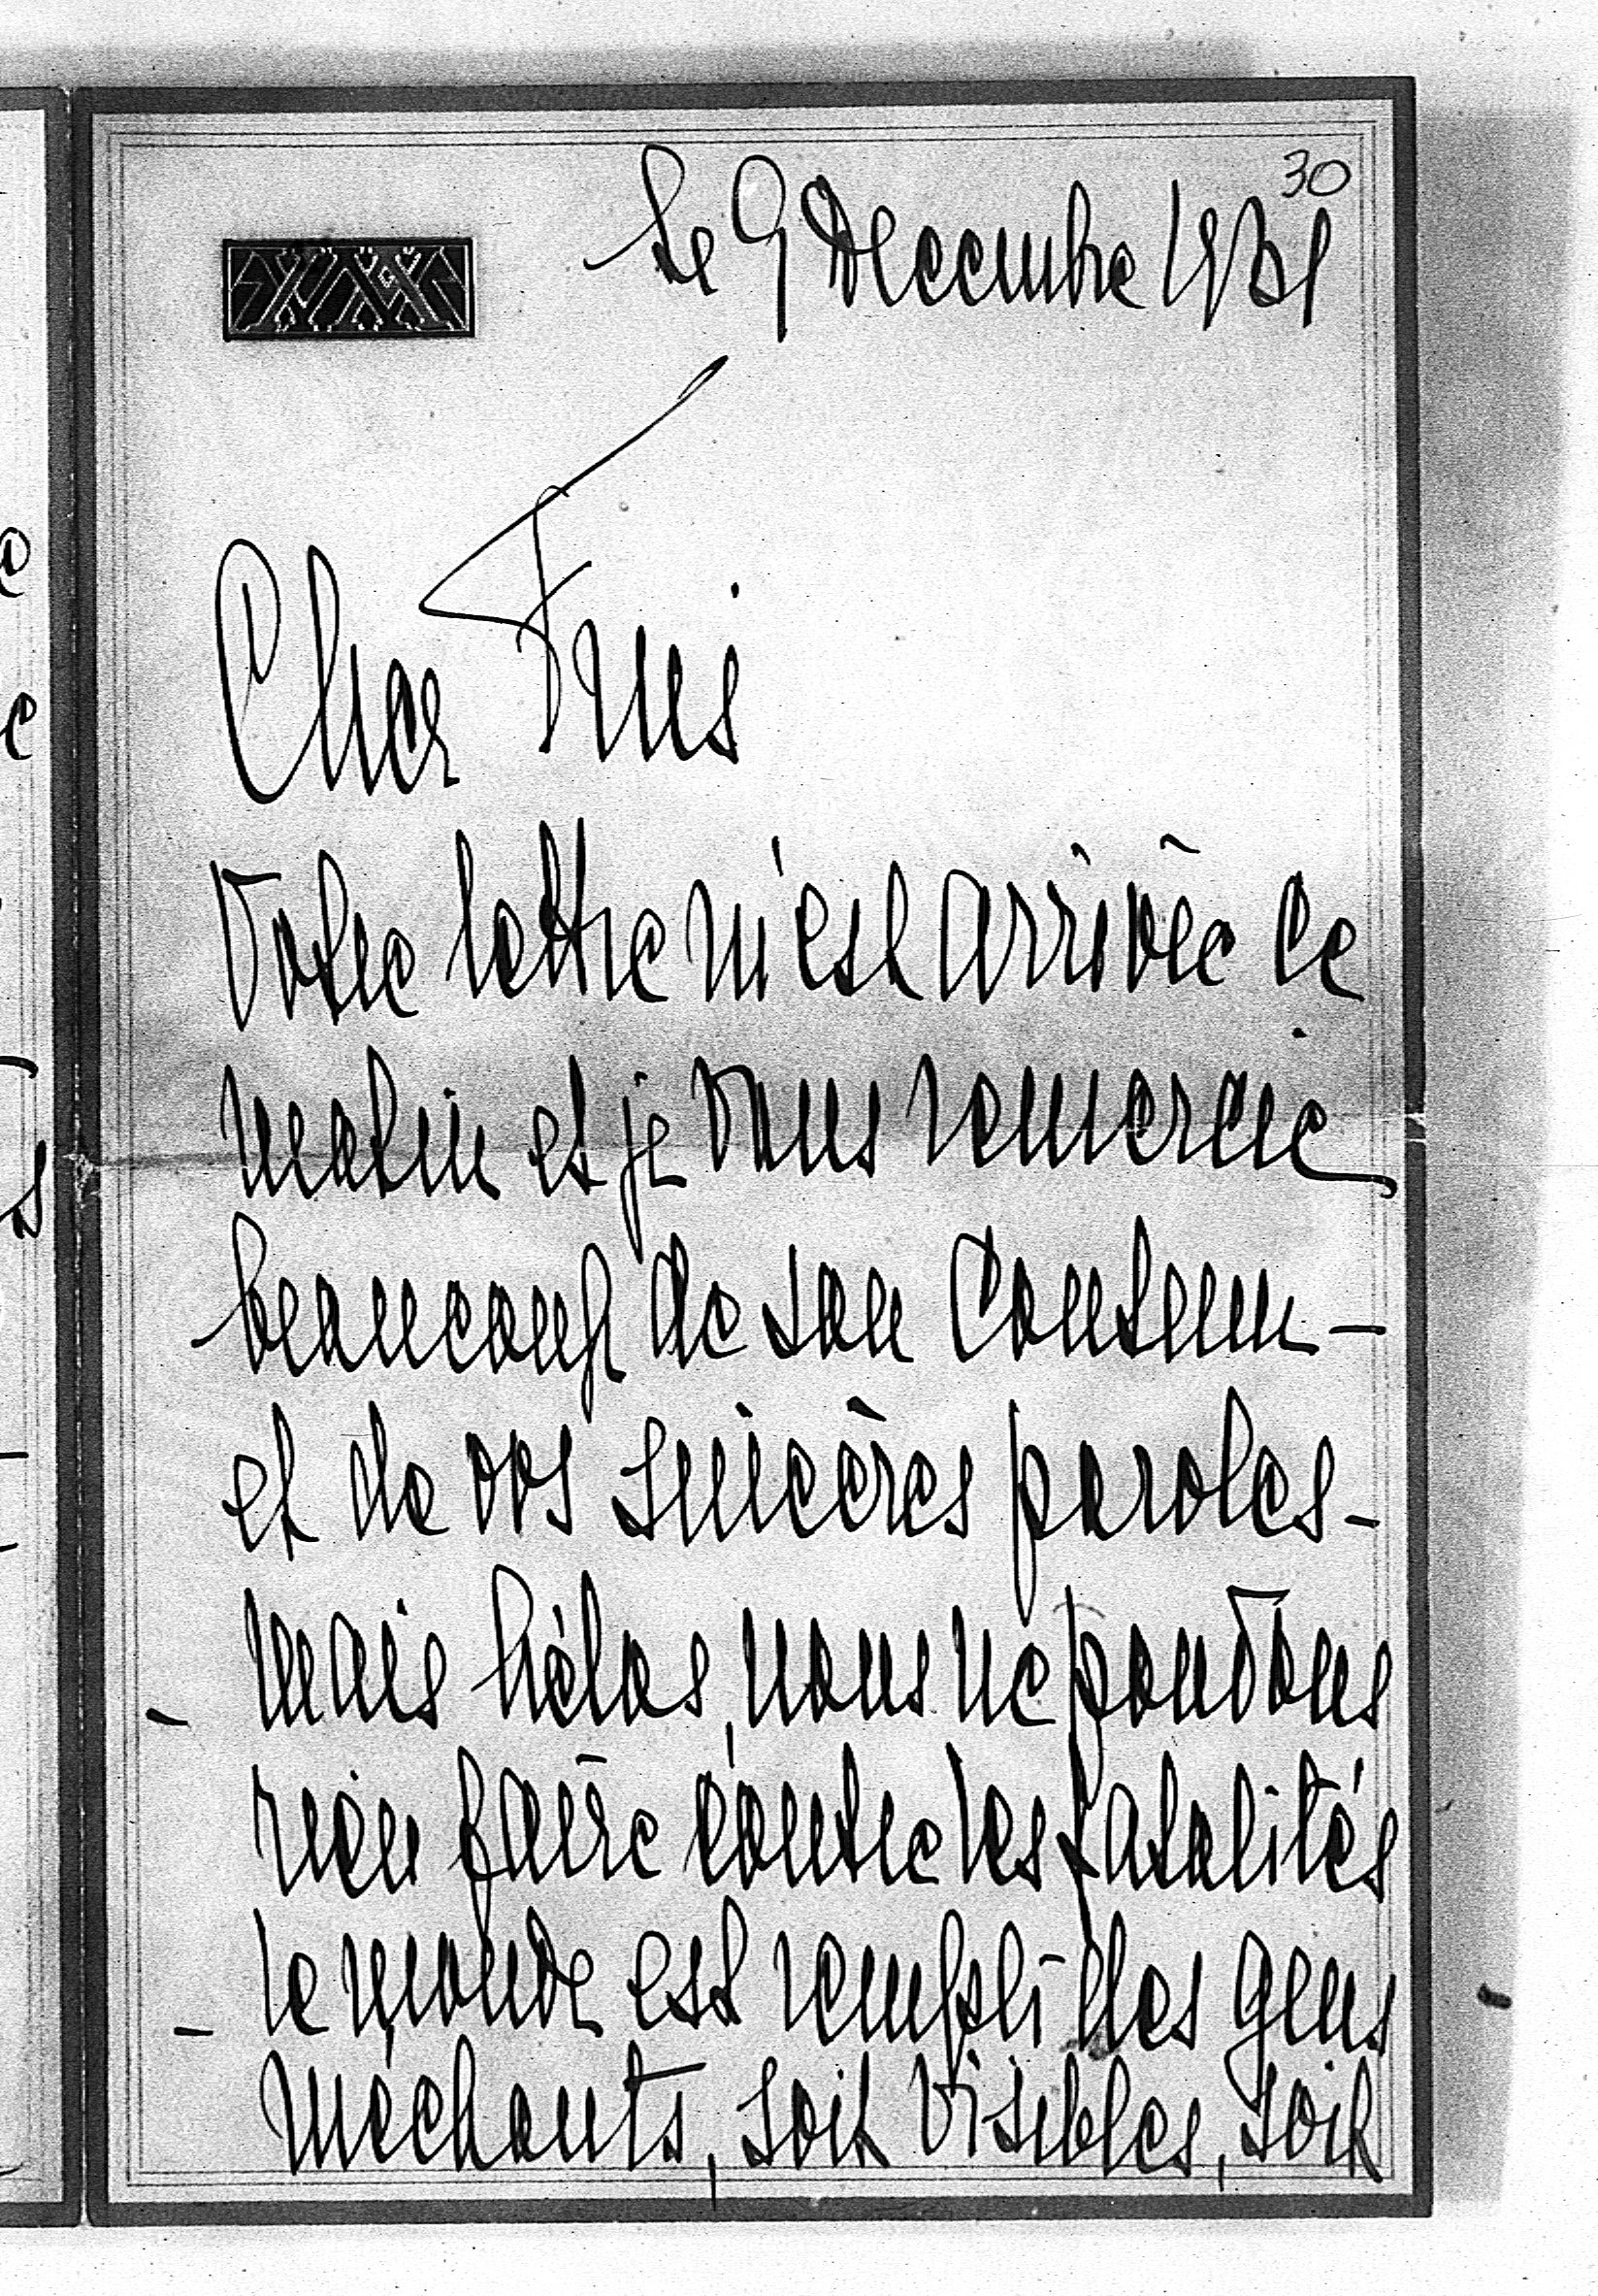 30
Le 9 Decembre 1931
Cher Friis
Votre lettre m'est arrivée ce
matin et je vous remercie
beaucoup de son contenu –
et de vos sincères paroles –
– mais hélas, nous ne pouvons
rien faire contre les fatalités
– le monde est rempli des gens
méchants, soit visibles, soit